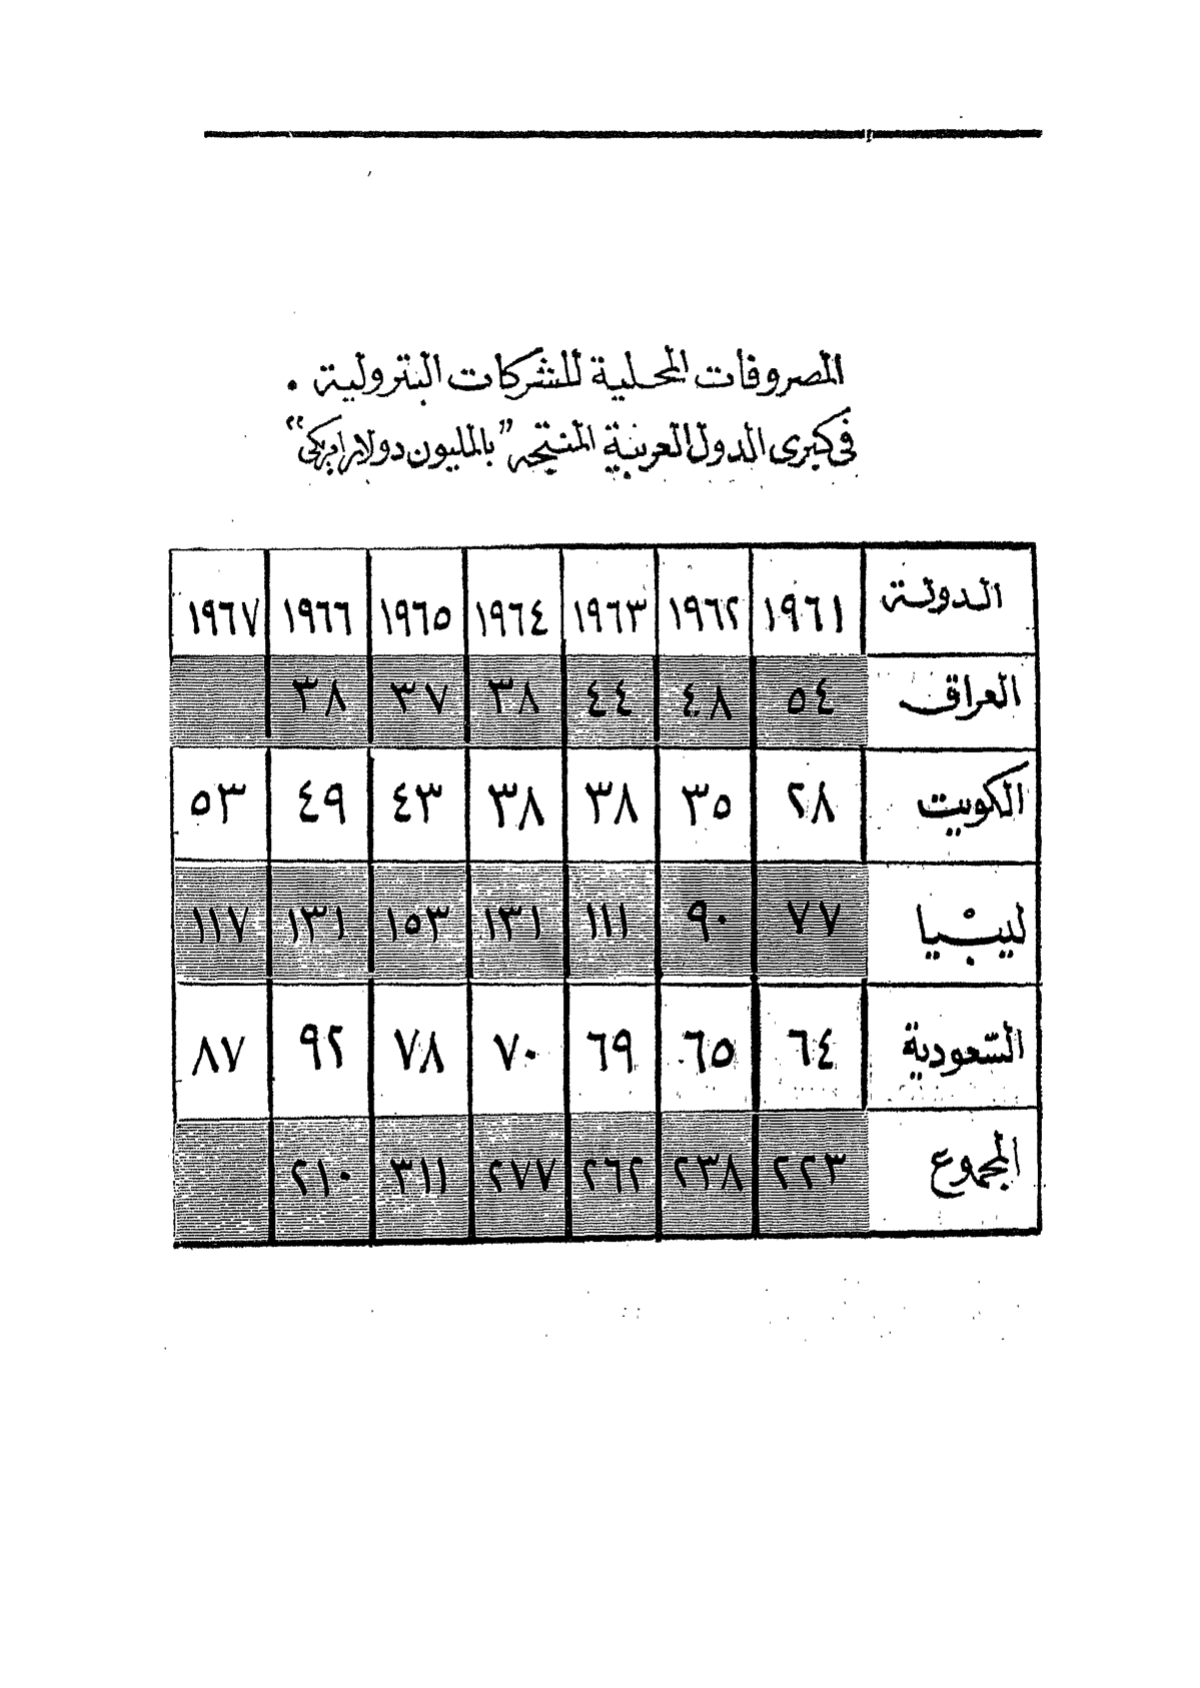 المصروفات المحلية للشركات البترولية .
في كبرى الدول العربية المنتجه "بالمليون دولار امريكي"
الدولة ١٩٦١ ١٩٦٢ ١٩٦٣ ١٩٦٤ ١٩٦٥ ١٩٦٦ ١٩٦٧
العراق ٥٤ ٤٨ ٤٤ ٣٨ ٣٧ ٣٨
الكويت ٢٨ ٣٥ ٣٨ ٣٨ ٤٣ ٤٩ ٥٣
ليبيا ٧٧ ٩٠ ١١١ ١٣١ ١٥٣ ١٣١ ١١٧
السعودية ٦٤ ٦٥ ٦٩ ٧٠ ٧٨ ٩٢ ٨٧
المجموع ٢٢٣ ٢٣٨ ٢٦٢ ٢٧٧ ٣١١ ٢١٠